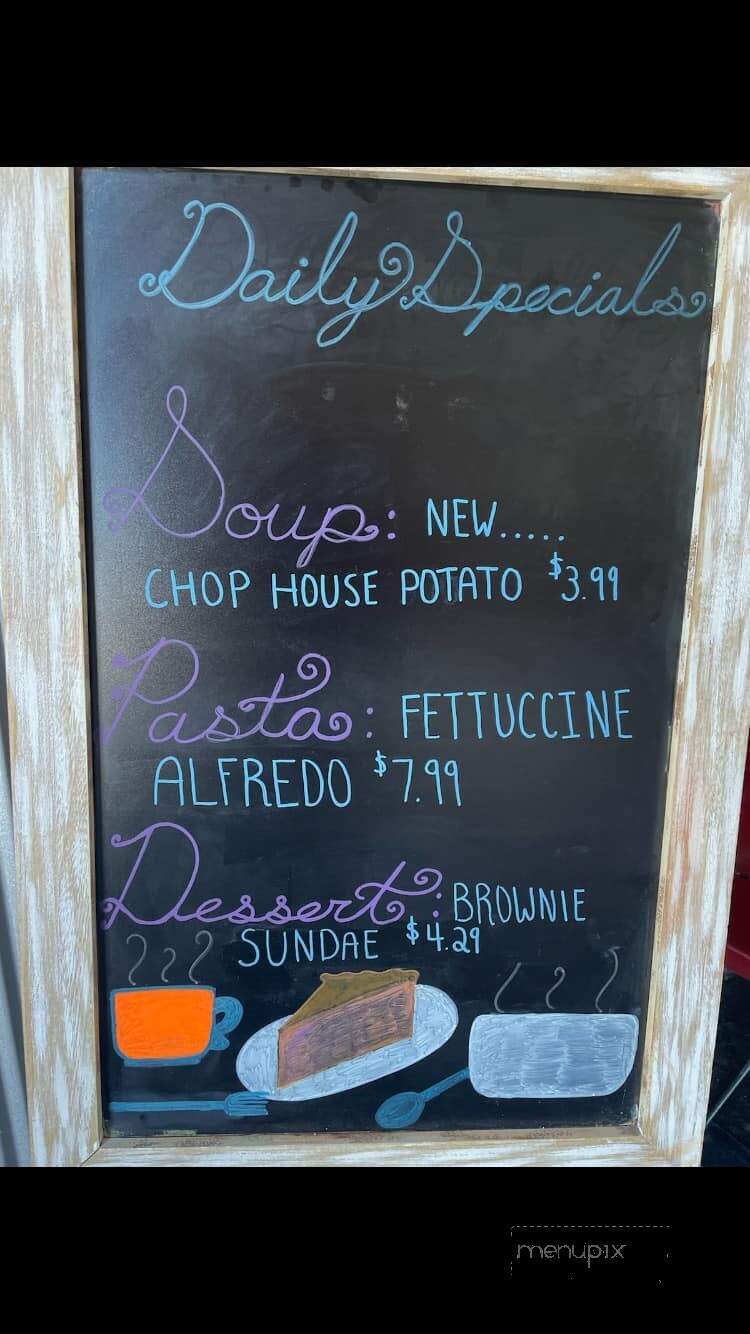 Daily Specials
Soup: NEW.....
CHOP HOUSE POTATO $3.99
Pasta: FETTUCCINE
ALFREDO $7.99
Dessert: BROWNIE
SUNDAE $4.29
menupix